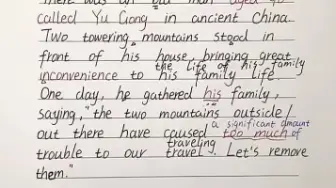 There was an old man aged 90
called Yu Gong in ancient China.
Two towering mountains stood in
front of his house, bringing great
the life of his family
inconvenience to his family life.
One day, he gathered his family,
saying, "the two mountains outside/
a significant amount
out there have caused too much of
traveling
trouble to our travel. Let's remove
them."